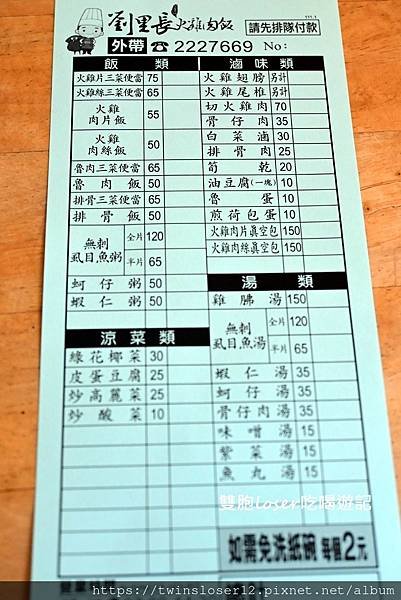 111.1
劉里長火雞肉飯
請先排隊付款
外帶 ☎ 2227669 No:
飯類
火雞片三菜便當 75
火雞絲三菜便當 65
火雞肉片飯 55
火雞肉絲飯 50
魯肉三菜便當 65
魯肉飯 50
排骨三菜便當 65
排骨飯 50
無刺虱目魚粥 全片 120
半片 65
蚵仔粥 50
蝦仁粥 50
涼菜類
綠花椰菜 30
皮蛋豆腐 25
炒高麗菜 25
炒酸菜 10
滷味類
火雞翅膀 另計
火雞尾椎 另計
切火雞肉 70
骨仔肉 35
白菜滷 30
排骨肉 25
筍乾 20
油豆腐(一塊) 10
魯蛋 10
煎荷包蛋 10
火雞肉片真空包 150
火雞肉絲真空包 150
湯類
雞腿湯 150
無刺虱目魚湯 全片 120
半片 65
蝦仁湯 35
蚵仔湯 35
骨仔肉湯 35
味噌湯 15
紫菜湯 15
魚丸湯 15
雙胞Loser吃喝遊記
如需免洗紙碗 每個2元
https://twinsloser12.pixnet.net/album